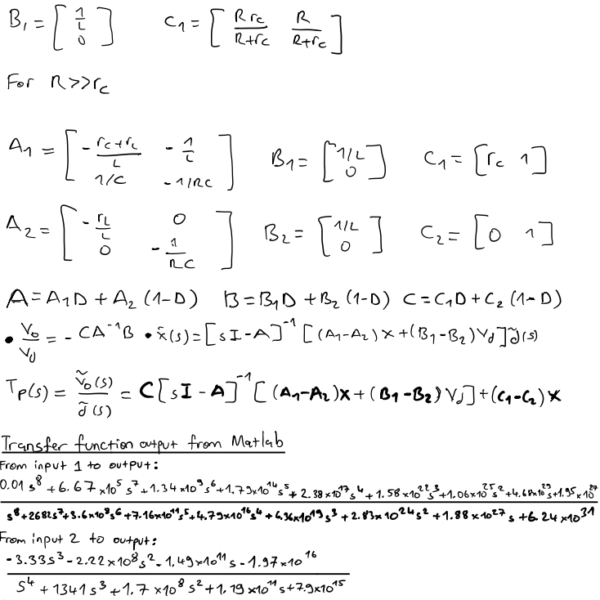 B₁ = [ 1/L ; 0 ] C₁ = [ Rrc/(R+rc) R/(R+rc) ]
For R>>rc
A₁ = [ -(rc+rL)/L -1/L ; 1/C -1/RC ] B₁ = [ 1/L ; 0 ] C₁ = [rc 1]
A₂ = [ -rL/L 0 ; 0 -1/RC ] B₂ = [ 1/L ; 0 ] C₂ = [0 1]
A=A₁D + A₂ (1-D) B=B₁D + B₂ (1-D) C=C₁D + C₂ (1-D)
• Vo/Vd = - CA⁻¹B • x̃(s)=[sI-A]⁻¹ [(A₁-A₂) X + (B₁-B₂) Vd] d̃(s)
Tp(s) = ṽo(s)/d̃(s) = C[sI-A]⁻¹[(A₁-A₂)X + (B₁-B₂) Vd] + (C₁-C₂) X
Transfer function output from Matlab
From input 1 to output:
0.01 s⁸ + 6.67x10⁵ s⁷ + 1.34x10⁹ s⁶ + 1.79x10¹⁴ s⁵ + 2.38x10¹⁷ s⁴ + 1.58x10²² s³ + 1.06x10²⁵ s² + 4.68x10²⁹ s + 1.95x10
s⁸ + 2682s⁷ + 3.6x10⁸ s⁶ + 7.16x10¹¹ s⁵ + 4.79x10¹⁶ s⁴ + 6.36x10¹⁹ s³ + 2.83x10²⁴ s² + 1.88x10²⁷ s + 6.24x10³¹
From input 2 to output:
-3.33s³ - 2.22x10⁸ s² - 1.49x10¹¹ s - 1.97x10¹⁶
s⁴ + 1341s³ + 1.7x10⁸ s² + 1.19x10¹¹ s + 7.9x10¹⁵